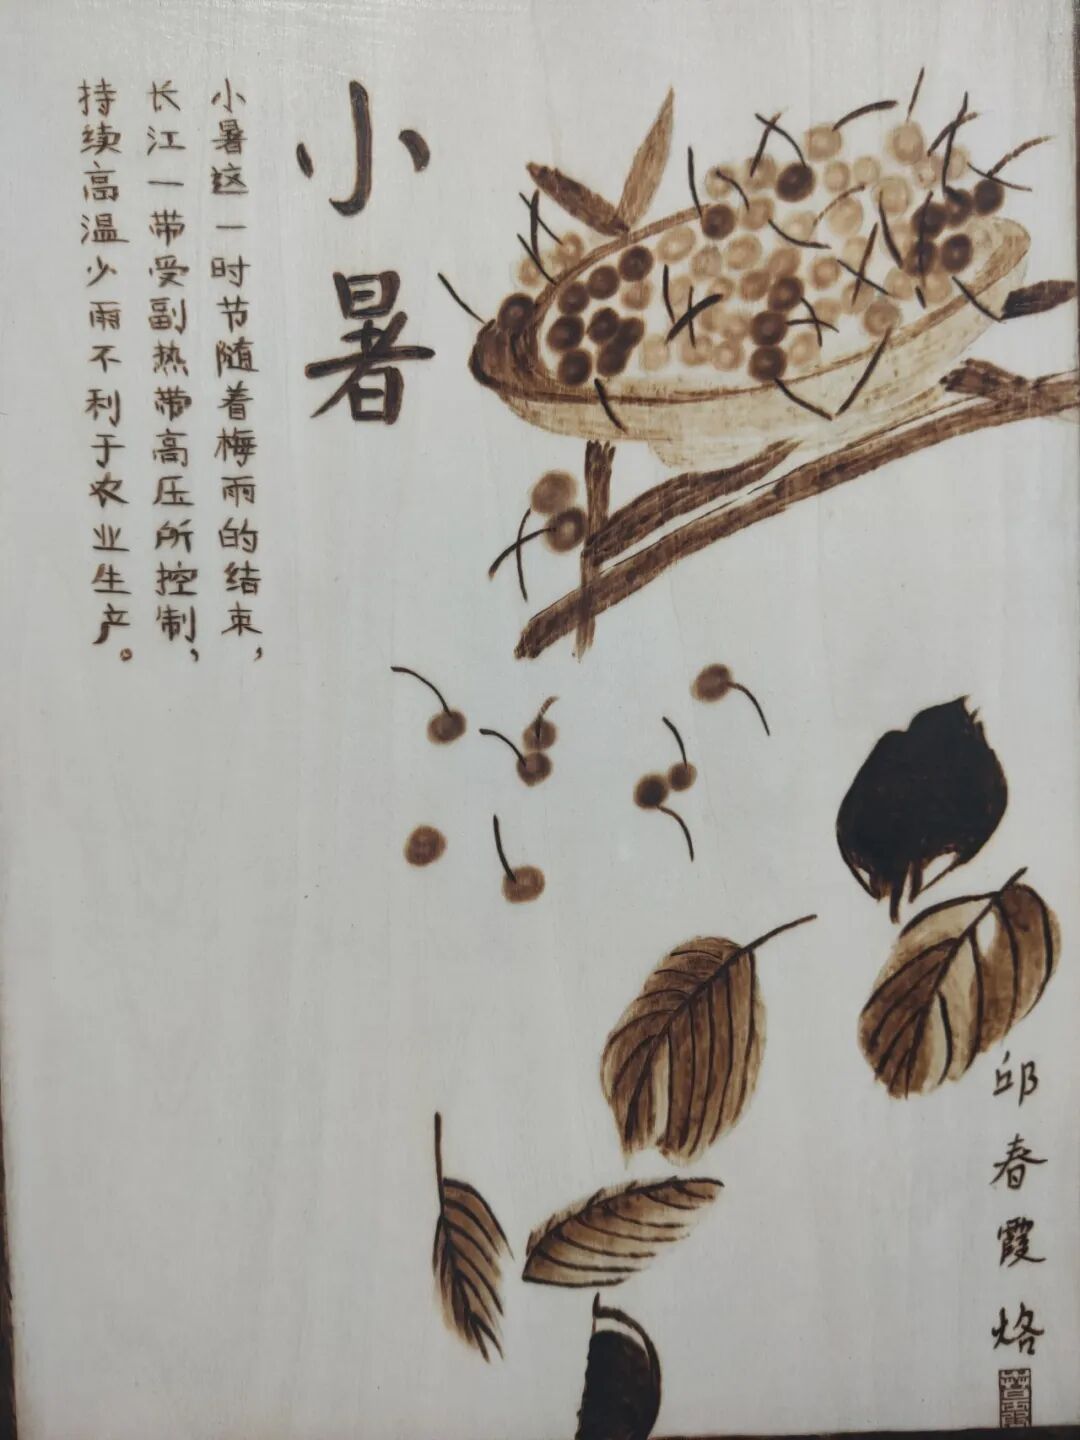 小暑
小暑这一时节随着梅雨的结束，
长江一带受副热带高压所控制，
持续高温少雨不利于农业生产。
邱春霞烙